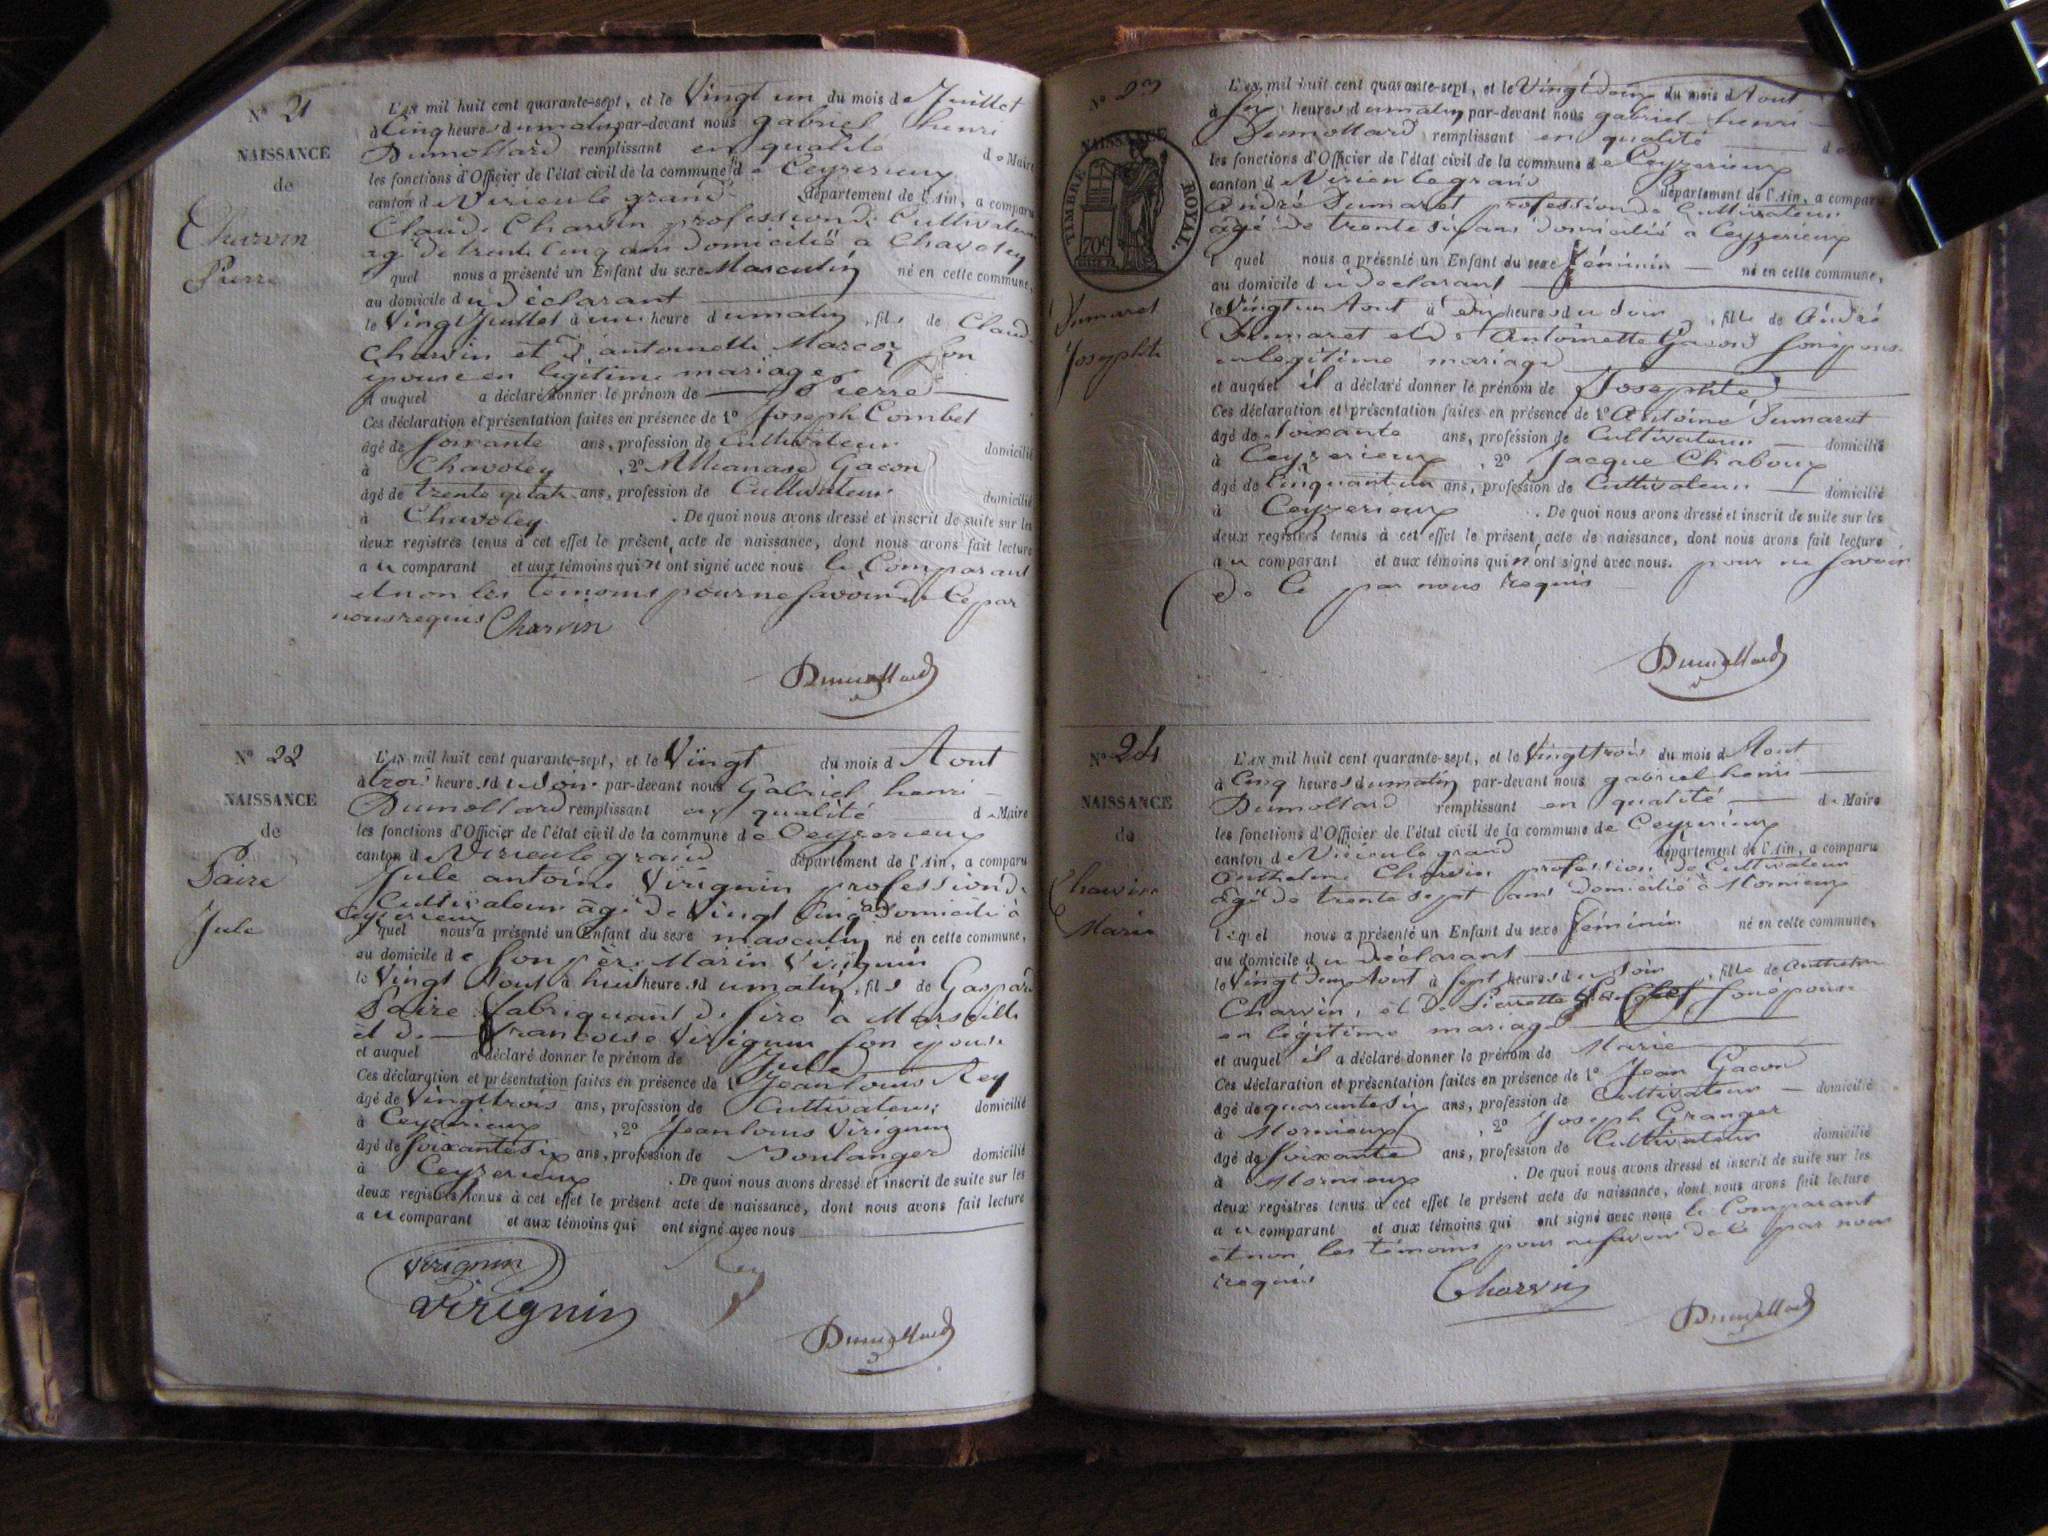 N° 21
NAISSANCE
de
Charvin
Pierre
L'AN mil huit cent quarante-sept, et le Vingt un du mois de Juillet
à Cinq heures du matin par-devant nous gabriel henri
Dumollard remplissant en qualité de Maire
les fonctions d'Officier de l'état civil de la commune de Ceyzerieux
canton de Virieu le grand département de l'Ain, a comparu
Claude Charvin profession de Cultivateur
agé de trente Cinq ans domicilié a Chavoley
quel nous a présenté un Enfant du sexe Masculin né en cette commune,
au domicile du déclarant
le Vingt Juillet à une heure du matin, fils de Claude
Charvin et d'antoinette Marcoz son
epouse en legitime mariage
et auquel a déclaré donner le prénom de Pierre
Ces déclaration et présentation faites en présence de 1° Joseph Combet
âgé de soixante ans, profession de Cultivateur domicilié
à Chavoley, 2° Athanase Gacon
âgé de trente quatre ans, profession de Cultivateur domicilié
à Chavoley. De quoi nous avons dressé et inscrit de suite sur les
deux registres tenus à cet effet le présent acte de naissance, dont nous avons fait lecture
au comparant et aux témoins qui ont signé avec nous le Comparant
et non les temoins pour ne savoir de Ce par
nous requis Charvin
Dumollard
N° 22
NAISSANCE
de
Paire
Jule
L'AN mil huit cent quarante-sept, et le Vingt du mois d Aout
à trois heures du Soir par-devant nous Gabriel henri
Dumollard remplissant en qualité de Maire
les fonctions d'Officier de l'état civil de la commune de Ceyzerieux
canton de Virieu le grand département de l'Ain, a comparu
Jule antoine Virignin profession de
Cultivateur âgé de Vingt Cinq ans domicilié à
Ceyzerieux
quel nous a présenté un Enfant du sexe masculin né en cette commune,
au domicile de son père Marin Virignin
le Vingt Aout à huit heures du matin, fils de Gaspard
Paire fabriquant de Cire a Marseille
et de francoise Virignin son epouse
et auquel a déclaré donner le prénom de Jule
Ces déclaration et présentation faites en présence de 1° Jean louis Rey
âgé de Vingt trois ans, profession de Cultivateur domicilié
à Ceyzerieux, 2° Jean louis Virignin
âgé de soixante six ans, profession de Boulanger domicilié
à Ceyzerieux. De quoi nous avons dressé et inscrit de suite sur les
deux registres tenus à cet effet le présent acte de naissance, dont nous avons fait lecture
au comparant et aux témoins qui ont signé avec nous
Virignin Rey
Virignin
Dumollard
N° 23
NAISSANCE
TIMBRE ROYAL
709
Dumaret
Josephte
L'AN mil huit cent quarante-sept, et le Vingt deux du mois d Aout
à Six heures du matin par-devant nous gabriel henri
Dumollard remplissant en qualité de Maire
les fonctions d'Officier de l'état civil de la commune de Ceyzerieux
canton de Virieu le grand département de l'Ain, a comparu
André Dumaret profession de Cultivateur
âgé de trente six ans domicilié a Ceyzerieux
l quel nous a présenté un Enfant du sexe féminin né en cette commune,
au domicile du declarant
le Vingt un Aout à dix heures du Soir, fille de André
Dumaret et de Antoinette Gacon son epouse
en legitime mariage
et auquel il a déclaré donner le prénom de Josephte
Ces déclaration et présentation faites en présence de 1° Antoine Dumaret
âgé de Soixante ans, profession de Cultivateur domicilié
à Ceyzerieux, 2° Jacque Chaboux
âgé de Cinquante un ans, profession de Cultivateur domicilié
à Ceyzerieux. De quoi nous avons dressé et inscrit de suite sur les
deux registres tenus à cet effet le présent acte de naissance, dont nous avons fait lecture
au comparant et aux témoins qui n'ont signé avec nous. pour ne savoir
de Ce par nous requis
Dumollard
N° 24
NAISSANCE
de
Charvin
Marie
L'AN mil huit cent quarante-sept, et le Vingt trois du mois d Aout
à Cinq heures du matin par-devant nous gabriel henri
Dumollard remplissant en qualité de Maire
les fonctions d'Officier de l'état civil de la commune de Ceyzerieux
canton de Virieu le grand département de l'Ain, a comparu
Anthelme Charvin profession de Cultivateur
âgé de trente sept ans domicilié à Mornieux
lequel nous a présenté un Enfant du sexe féminin né en cette commune,
au domicile du déclarant
le Vingt deux Aout à Sept heures du Soir, fille de Anthelme
Charvin, et de Pierrette son épouse
en légitime mariage
et auquel il a déclaré donner le prénom de Marie
Ces déclaration et présentation faites en présence de 1° Jean Gacon
âgé de quarante six ans, profession de Cultivateur domicilié
à Mornieux, 2° Joseph Granger
âgé de soixante ans, profession de Cultivateur domicilié
à Mornieux. De quoi nous avons dressé et inscrit de suite sur les
deux registres tenus à cet effet le présent acte de naissance, dont nous avons fait lecture
au comparant et aux témoins qui ont signé avec nous le Comparant
et non les témoins pour ne savoir de Ce par nous
requis Charvin
Dumollard